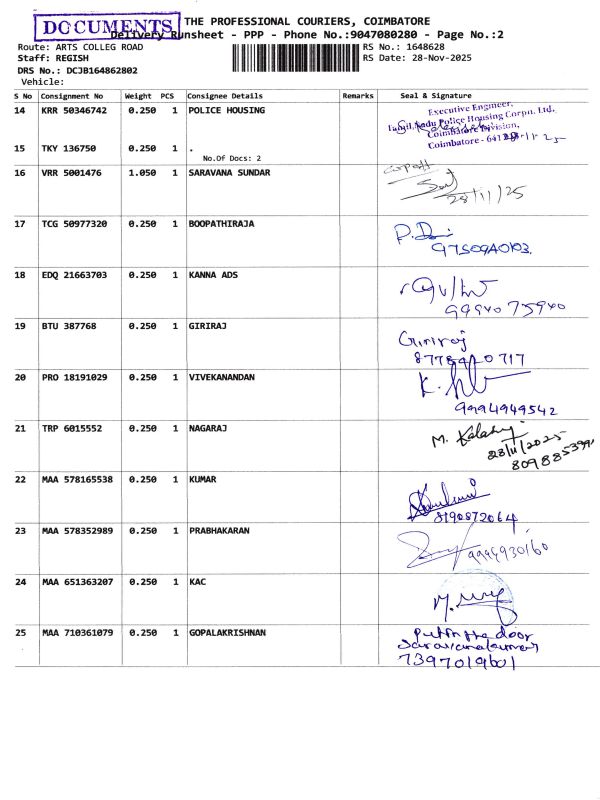 DOCUMENTS
THE PROFESSIONAL COURIERS, COIMBATORE
Delivery Runsheet - PPP - Phone No.:9047080280 - Page No.:2
Route: ARTS COLLEG ROAD
RS No.: 1648628
Staff: REGISH
RS Date: 28-Nov-2025
DRS No.: DCJB164862802
Vehicle:
S No Consignment No Weight PCS Consignee Details Remarks Seal & Signature
14 KRR 50346742 0.250 1 POLICE HOUSING
Executive Engineer,
Tamil Nadu Police Housing Corpn. Ltd.,
Coimbatore Division,
Coimbatore - 641
15 TKY 136750 0.250 1 .
No.Of Docs: 2
16 VRR 5001476 1.050 1 SARAVANA SUNDAR
28/11/25
17 TCG 50977320 0.250 1 BOOPATHIRAJA
18 EDQ 21663703 0.250 1 KANNA ADS
99940 75940
19 BTU 387768 0.250 1 GIRIRAJ
Giriraj
20 PRO 18191029 0.250 1 VIVEKANANDAN
9994949542
21 TRP 6015552 0.250 1 NAGARAJ
28/11/2025
22 MAA 578165538 0.250 1 KUMAR
8190872064
23 MAA 578352989 0.250 1 PRABHAKARAN
9994930160
24 MAA 651363207 0.250 1 KAC
25 MAA 710361079 0.250 1 GOPALAKRISHNAN
put in the door
7397019601